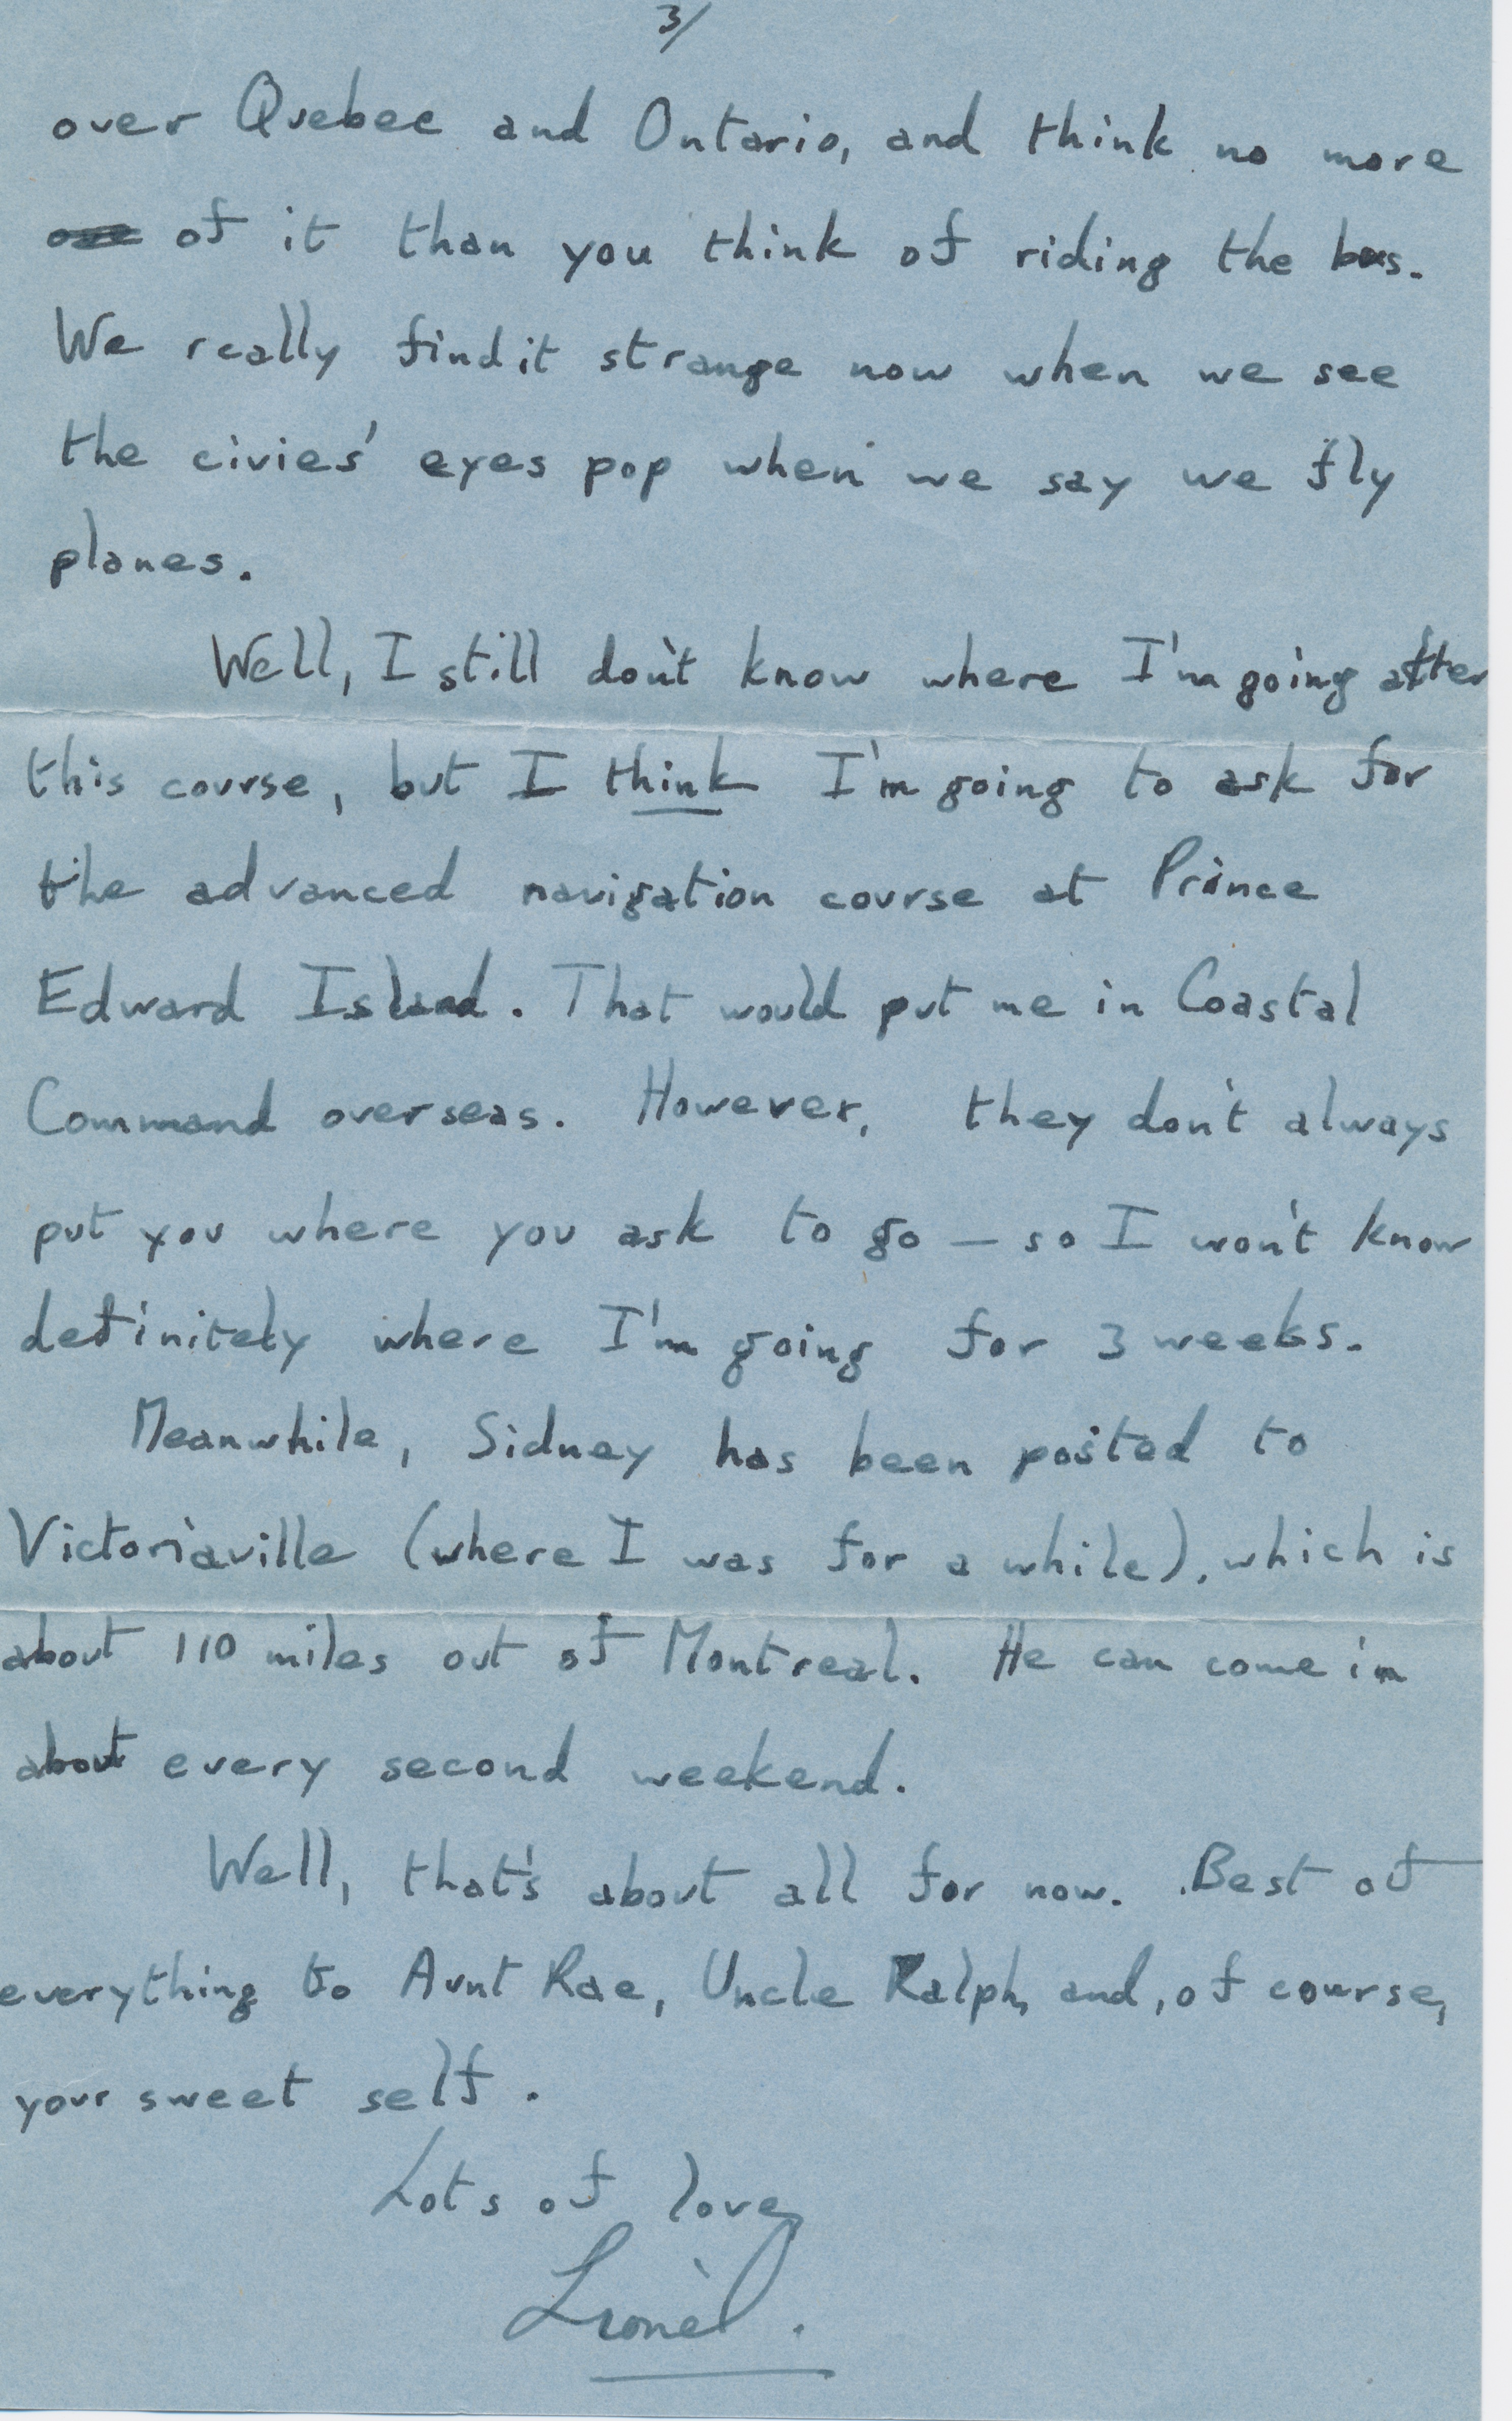 3/
over Quebec and Ontario, and think no more
of it than you think of riding the bus.
We really find it strange now when we see
the civies' eyes pop when we say we fly
planes.
Well, I still don't know where I'm going after
this course, but I think I'm going to ask for
the advanced navigation course at Prince
Edward Island. That would put me in Coastal
Command overseas. However, they don't always
put you where you ask to go — so I won't know
definitely where I'm going for 3 weeks.
Meanwhile, Sidney has been posted to
Victoriaville (where I was for a while), which is
about 110 miles out of Montreal. He can come in
about every second weekend.
Well, that's about all for now. Best of
everything to Aunt Rae, Uncle Ralph, and, of course,
your sweet self.
Lots of love,
Lionel.